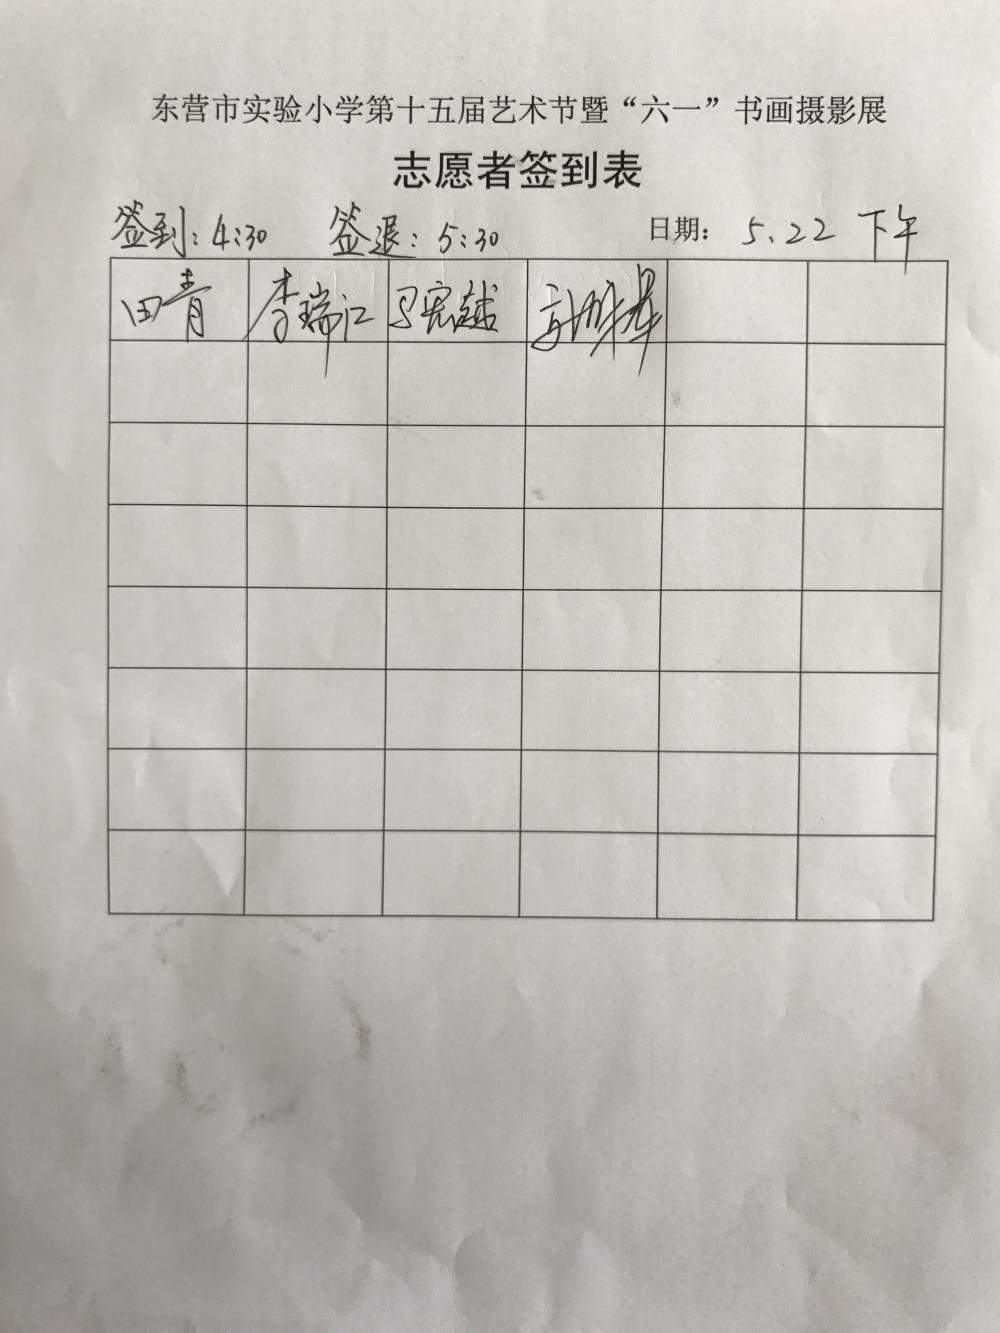 东营市实验小学第十五届艺术节暨“六一”书画摄影展
志愿者签到表
签到：4:30 签退：5:30 日期： 5.22 下午
田青 李瑞江